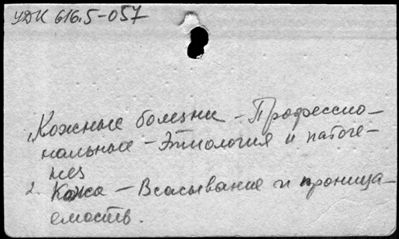 УДК 616.5-057
1. Кожные болезни - Професcио-
нальные - Этиология и патоге-
нез
2. Кожа - Всасывание и проница-
емость.